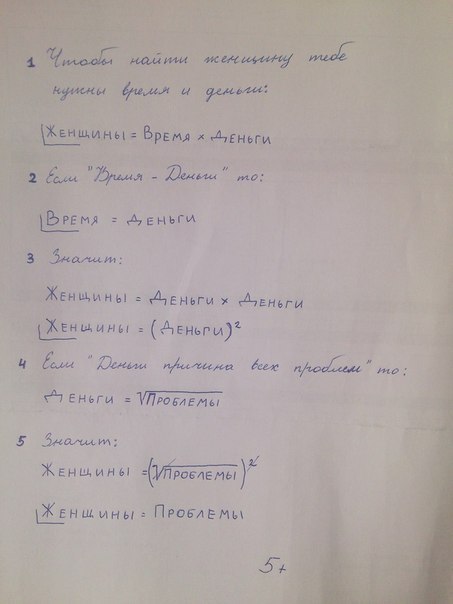 1 Чтобы найти женщину тебе
нужны время и деньги:
Женщины = Время × Деньги
2 Если "Время - Деньги" то:
Время = Деньги
3 Значит:
Женщины = Деньги × Деньги
Женщины = (Деньги)²
4 Если "Деньги причина всех проблем" то:
Деньги = √Проблемы
5 Значит:
Женщины = (√Проблемы)²
Женщины = Проблемы
5+